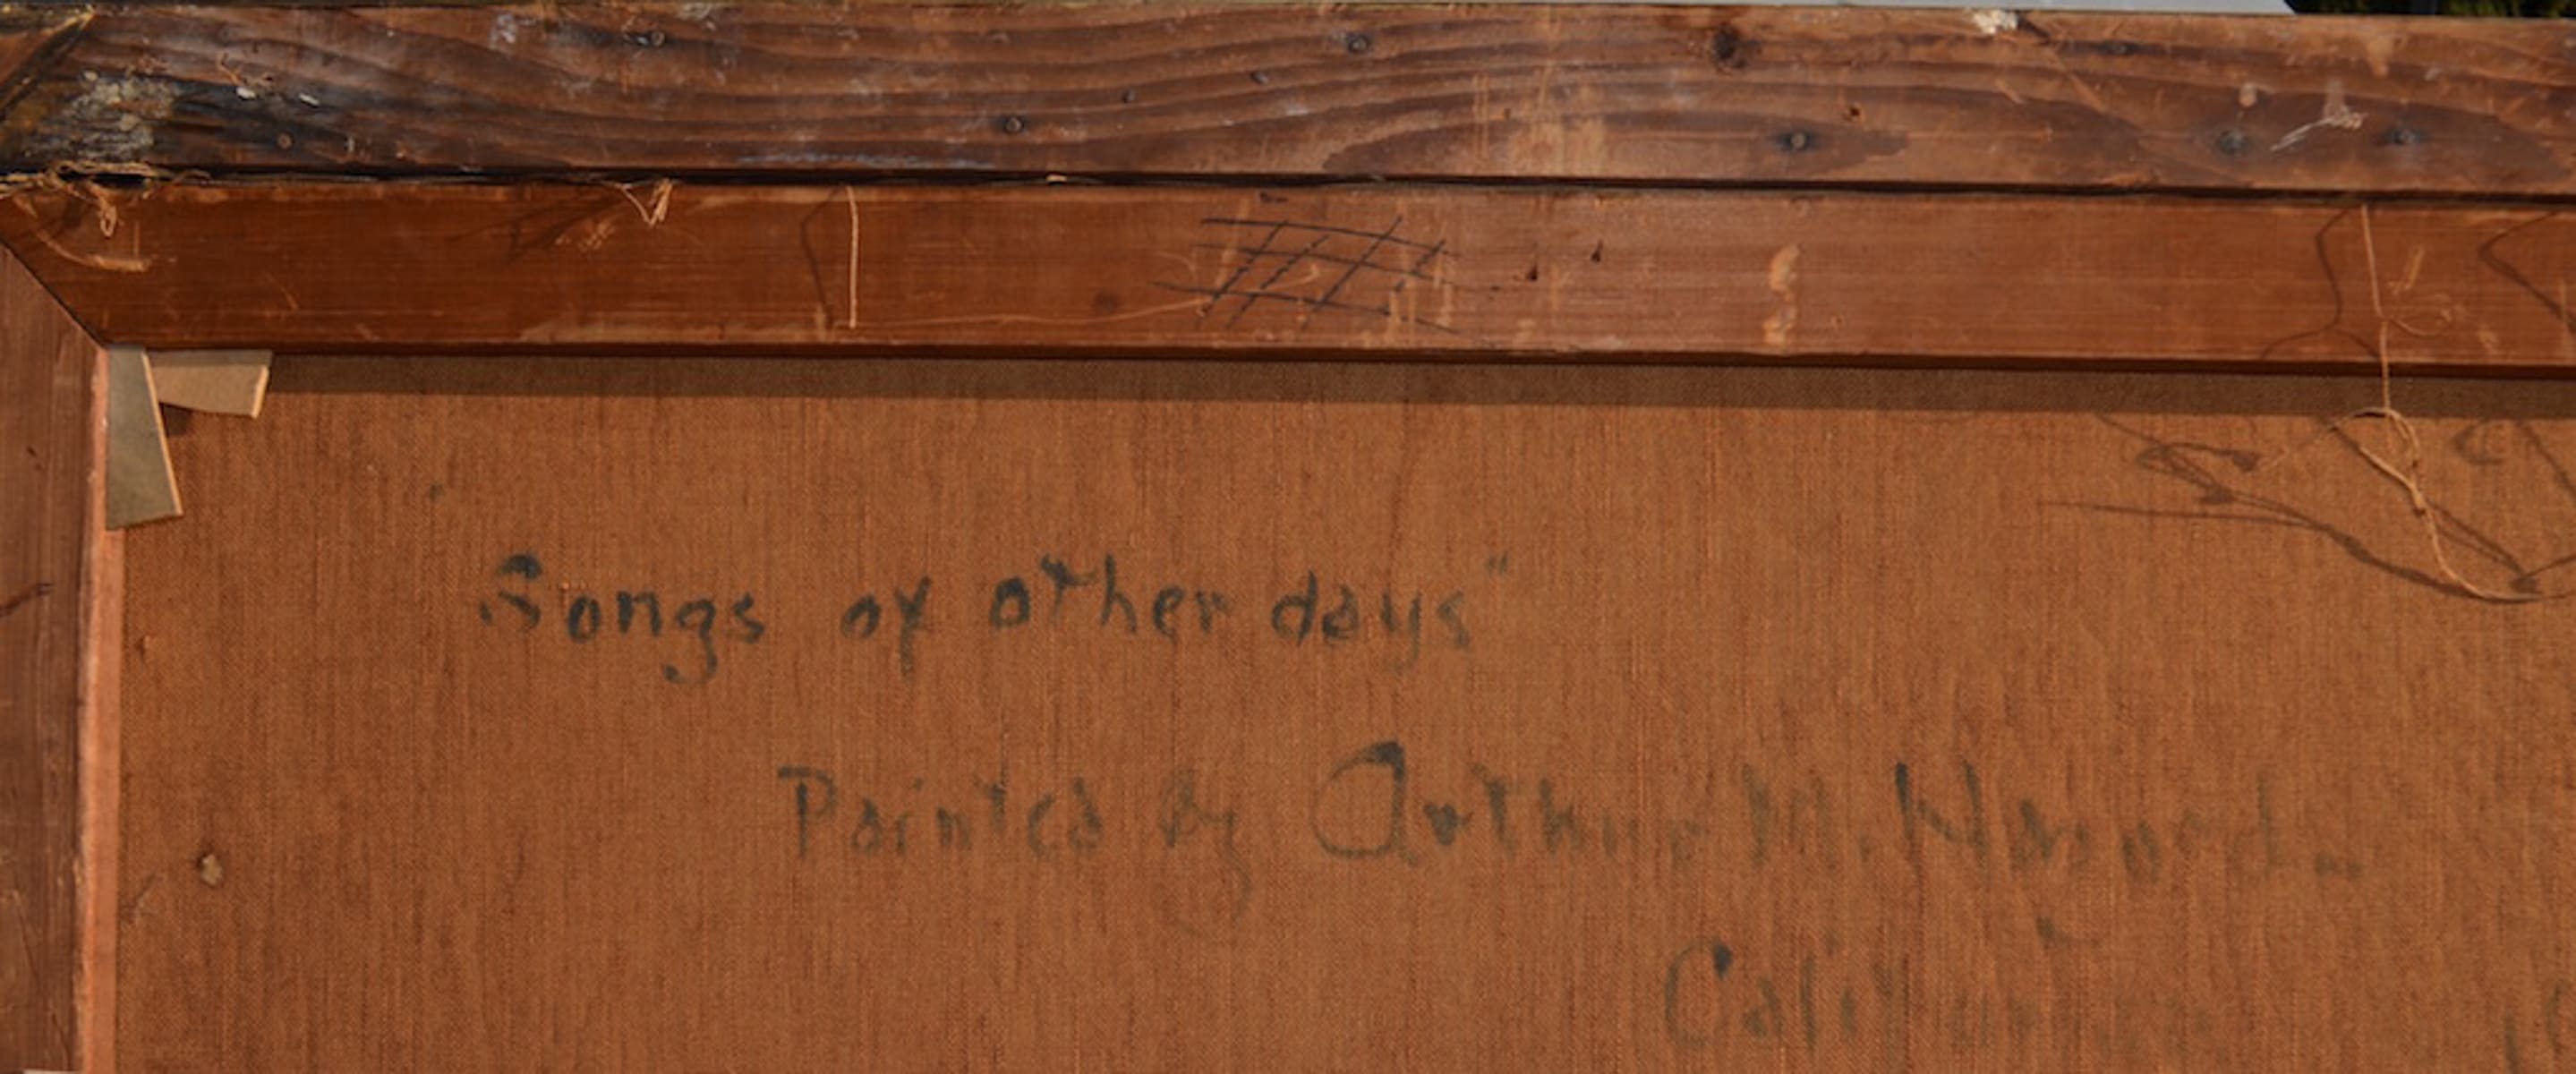 "Songs of other days"
Painted by Arthur M. Hazard
California